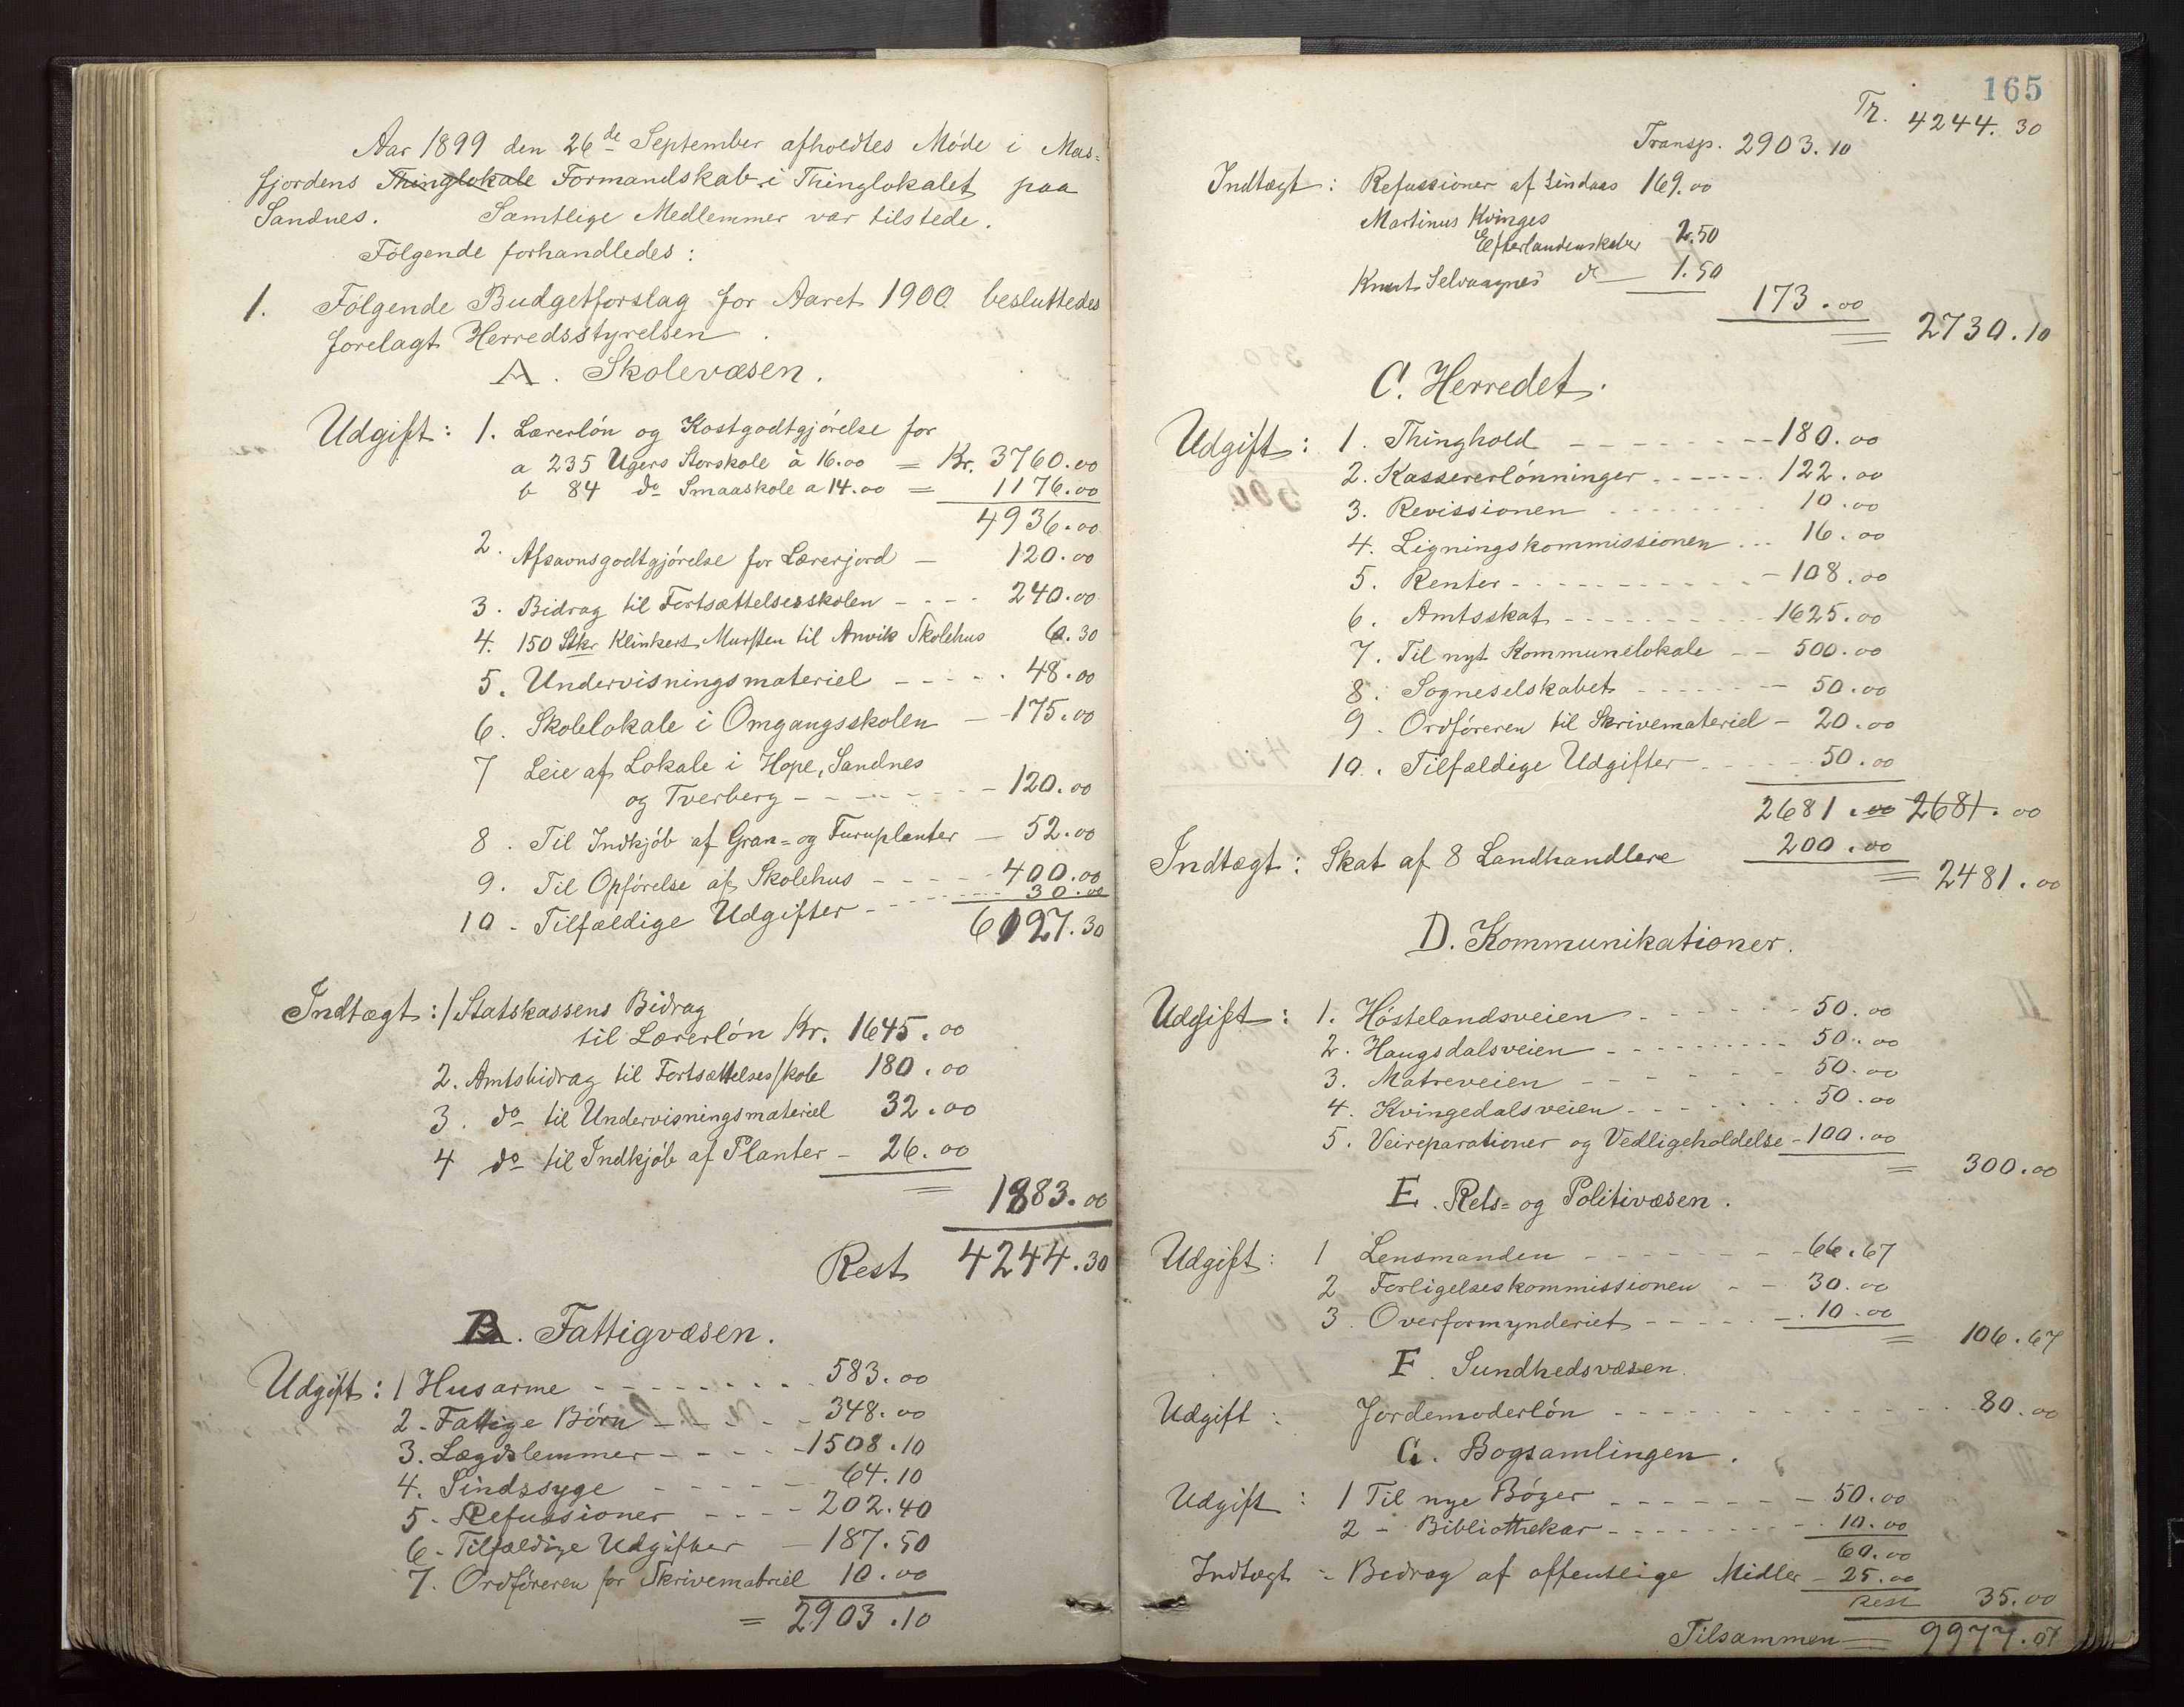 Aar 1899 den 26de September afholdtes Møde i Mas=
fjordens Thinglokale Formandskab i Thinglokalet paa
Sandnes. Samtlige Medlemmer var tilstede.
Følgende forhandledes:
1. Følgende Budgetforslag for Aaret 1900 besluttedes
forelagt Herredsstyrelsen.
A. Skolevæsen.
Udgift: 1. Lærerløn og Kostgodtgjørelse for
a 235 Ugers Storskole à 16.00 = Kr. 3760.00
b 84 do Smaaskole a 14.00 = 1176.00
4936.00
2. Afsavnsgodtgjørelse for Lærerjord – 120.00
3. Bidrag til Fortsættelsesskolen – – – – 240.00
4. 150 Stkr Klinkert Mursten til Anvik Skolehus 6.30
5. Undervisningsmateriel – – – – 48.00
6. Skolelokale i Omgangsskolen – 175.00
7 Leie af Lokale i Hope, Sandnes
og Tverberg – – – – – 120.00
8. Til Indkjøb af Gran= og Furuplanter – 52.00
9. Til Opførelse af Skolehus – – – – 400.00
10 - Tilfældige Udgifter – – – 30.00
6127.30
Indtægt: 1 Statskassens Bidrag
til Lærerløn Kr. 1645.00
2. Amtsbidrag til Fortsættelsesskole 180.00
3. do til Undervisningsmateriel 32.00
4 do til Indkjøb af Planter – 26.00
= 1883.00
Rest 4244.30
B. Fattigvæsen.
Udgift: 1 Husarme – – – – – 583.00
2 - Fattige Børn – – – – 348.00
3. Lægdslemmer – – – – 1508.10
4. Sindssyge – – – – – 64.10
5 - Refussioner – – – – 202.40
6 - Tilfældige Udgifter – 187.50
7. Ordføreren for Skrivematriel 10.00
= 2903.10
165
Tr. 4244.30
Transp. 2903.10
Indtægt: Refussioner af Lindaas 169.00
Martinus Kvinges
Efterladenskaber 2.50
Knut Selvaagnes do 1.50
173.00
= 2730.10
C. Herredet.
Udgift: 1. Thinghold – – – – – – 180.00
2. Kassererlønninger – – – – – 122.00
3. Revissionen – – – – – – 10.00
4. Ligningskommissionen – – – 16.00
5. Renter – – – – – – – 108.00
6. Amtsskat – – – – – – – 1625.00
7. Til nyt Kommunelokale – – 500.00
8. Sogneselskabet – – – – – 50.00
9. Ordføreren til Skrivemateriel – 20.00
10. Tilfældige Udgifter – – – – 50.00
2681.00 2681.00
Indtægt: Skat af 8 Landhandlere 200.00
= 2481.00
D. Kommunikationer.
Udgift: 1. Høstelandsveien – – – – – 50.00
2. Haugsdalsveien – – – – – – 50.00
3. Matreveien – – – – – 50.00
4. Kvingedalsveien – – – – – 50.00
5. Veireparationer og Vedligeholdelse – 100.00
= 300.00
E. Rets= og Politivæsen.
Udgift: 1 Lensmanden – – – – – – 66.67
2 Forligelseskommissionen – – 30.00
3. Overformynderiet – – – – – 10.00
= 106.67
F. Sundhedsvæsen.
Udgift: Jordemoderløn – – – – – – – – 80.00
G. Bogsamlingen.
Udgift: 1 Til nye Bøger – – – – – – 50.00
2 - Bibliothekar – – – – – – 10.00
60.00
Indtægt – Bedrag af offentlige Midler – 25.00
Rest 35.00
Tilsammen = 9977.07